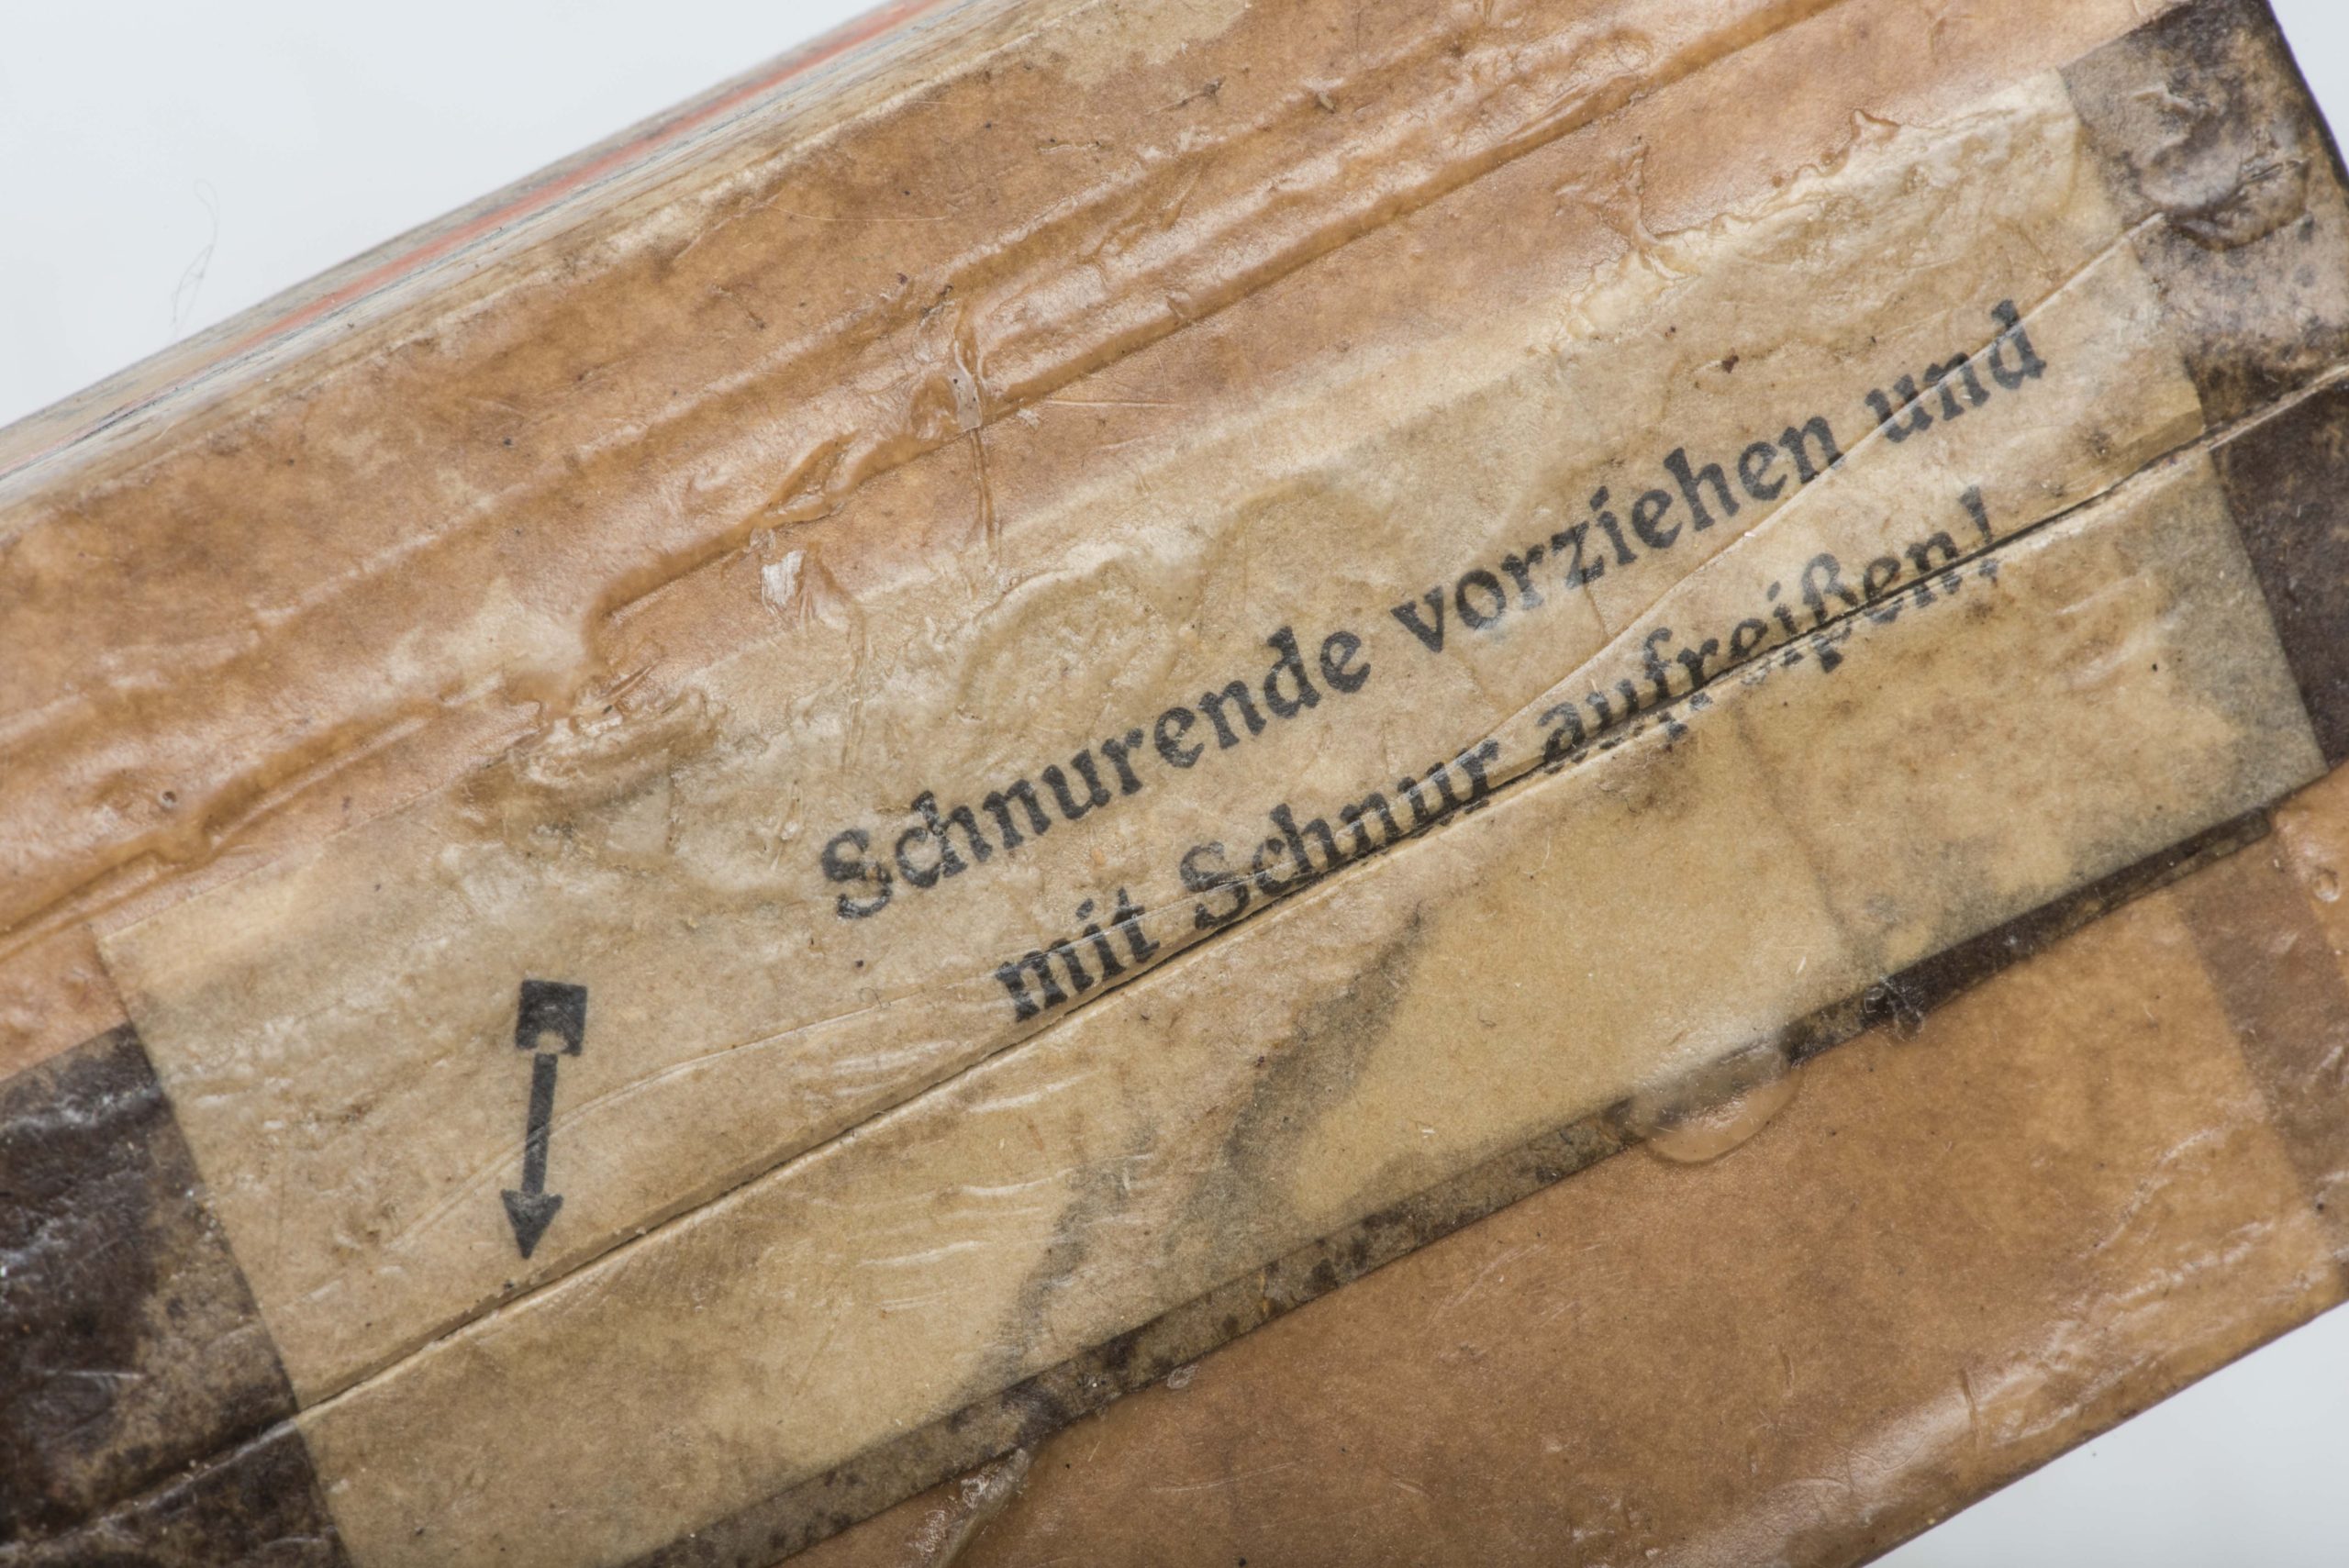 Schnurende vorziehen und
mit Schnur aufreißen!